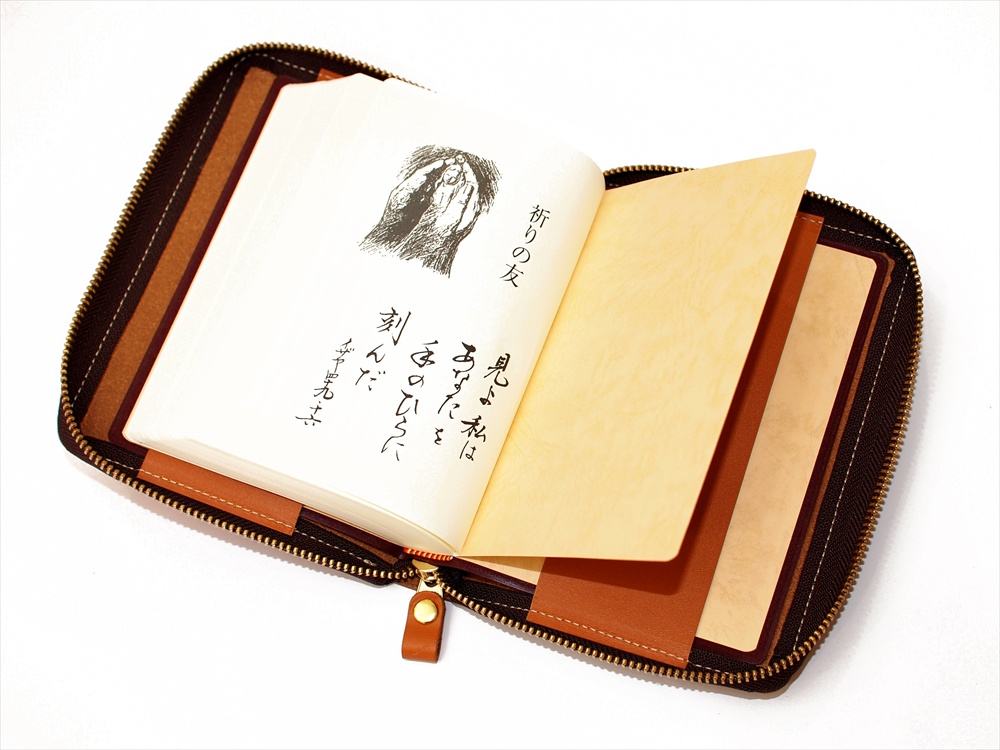 祈りの友
見よ私は
あなたを
手のひらに
刻んだ
イザヤ四九・十六